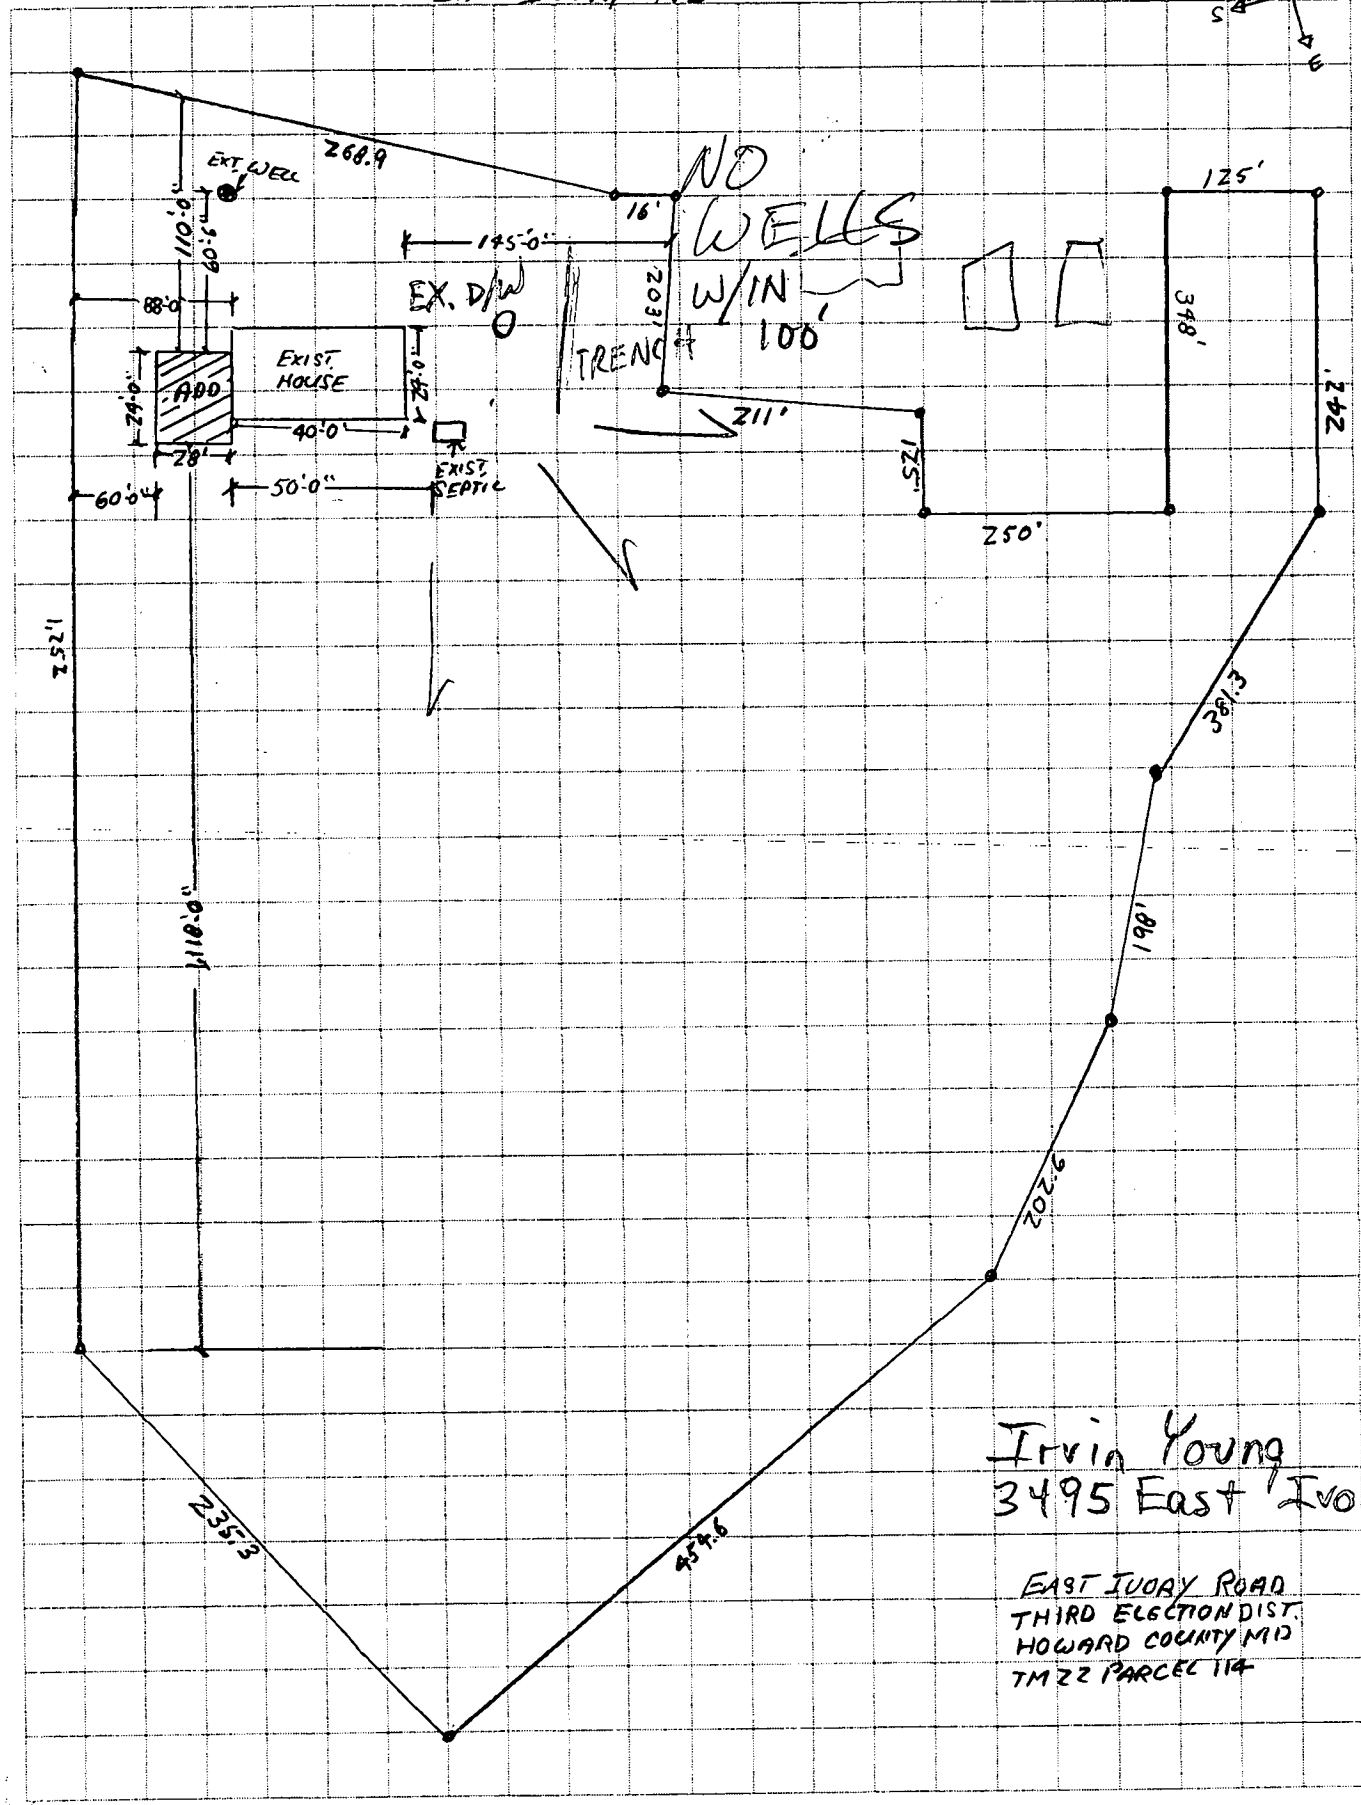 S
E
268.9
EXT. WELL
16'
NO
WELLS
W/IN
100'
125'
110'-0"
60'-5"
145'-0"
88'-0
EX. D/W
203'
TRENCH
348'
242'
EXIST.
HOUSE
24'-0"
ADD
24'-0"
40'-0"
28'
211'
125'
EXIST.
SEPTIC
60'-0"
50'-0"
250'
1,252
381.3
1,118'-0"
198'
202.6
235.3
454.6
Irvin Young
3495 East Ivo
EAST IVORY ROAD
THIRD ELECTION DIST.
HOWARD COUNTY MD
TM 22 PARCEL 114